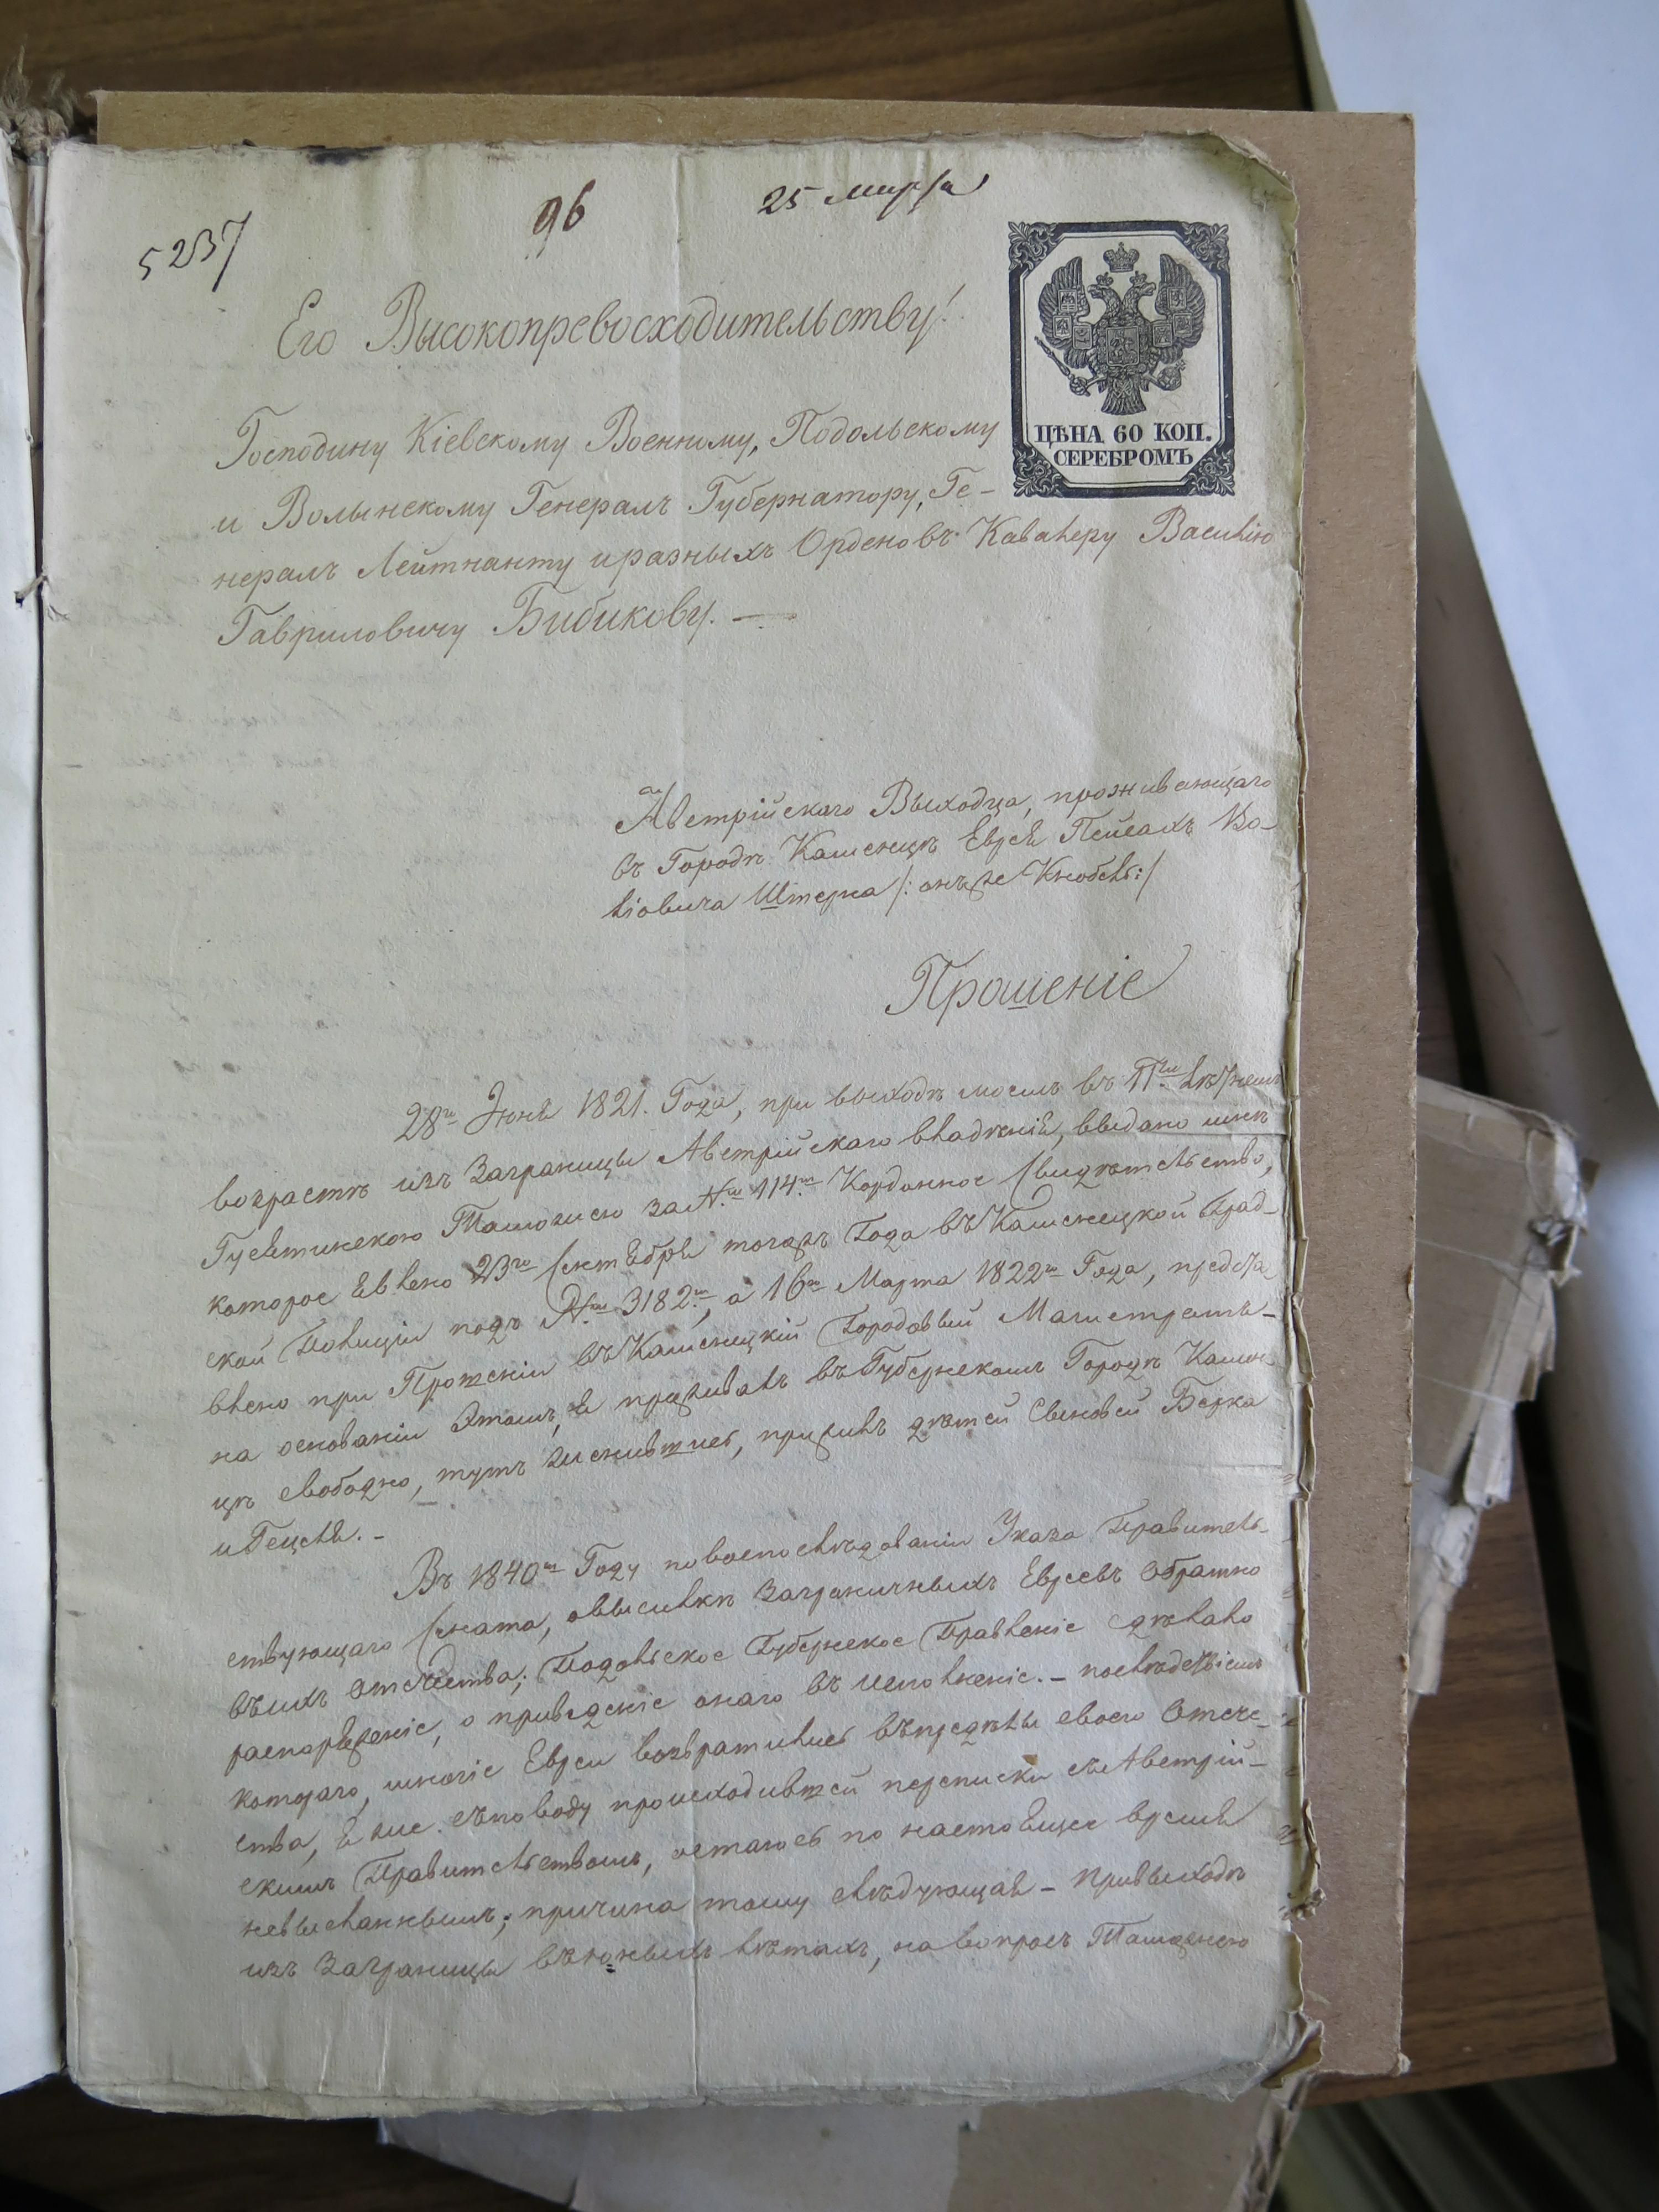 5237
96
25 Марта
ЦѢНА 60 КОП.
СЕРЕБРОМЪ
Его Высокопревосходительству!
Господину Кіевскому Военному, Подольскому
и Волынскому Генералъ Губернатору, Ге-
нералъ Лейтнанту и разныхъ Орденовъ Кавалеру Василію
Гавриловичу Бибикову. —
Австрійскаго Выходца, проживающаго
въ Городѣ Каменцѣ Еврея Пейсахъ Во-
ліовича Штерна /: онъ же Кнобель :/
Прошеніе
28го Іюня 1821. Года, при выходѣ моемъ въ 11ти лѣтнемъ
возрастѣ изъ Заграницы Австрійскаго владѣнія, выдано мнѣ
Гусятинскою Таможнею за №мъ 114мъ Кордонное Свидѣтельство,
которое явлено 23го Сентября тогожъ Года въ Каменецкой Град-
ской Полиціи подъ №мъ 3182мъ, а 16го Марта 1822го Года, предста
влено при Прошеніи въ Каменецкій Городовый Магистратъ -
на основаніи этомъ, я проживалъ въ Губернскомъ Городѣ Камен
цѣ свободно, тутъ женившись, прижилъ дѣтей Сыновей Берка
и Гецеля. -
Въ 1840мъ Году по воспослѣдованіи Указа Правитель-
ствующаго Сената, о высылкѣ Заграничныхъ Евреевъ обратно
въ ихъ отечества; Подольское Губернское Правленіе сдѣлало
распоряженіе, о приведеніе онаго въ исполненіе. - послѣдствіемъ
котораго, многіе Евреи возвратились въ предѣлы своего Отече-
ства, я же съ поводу происходившей переписки съ Австрій-
скимъ Правительствомъ, остаюсь по настоящее время
невысланнымъ; причина тому слѣдующая - При выходѣ
изъ Заграницы въ юныхъ лѣтахъ, на вопросъ Таможнею